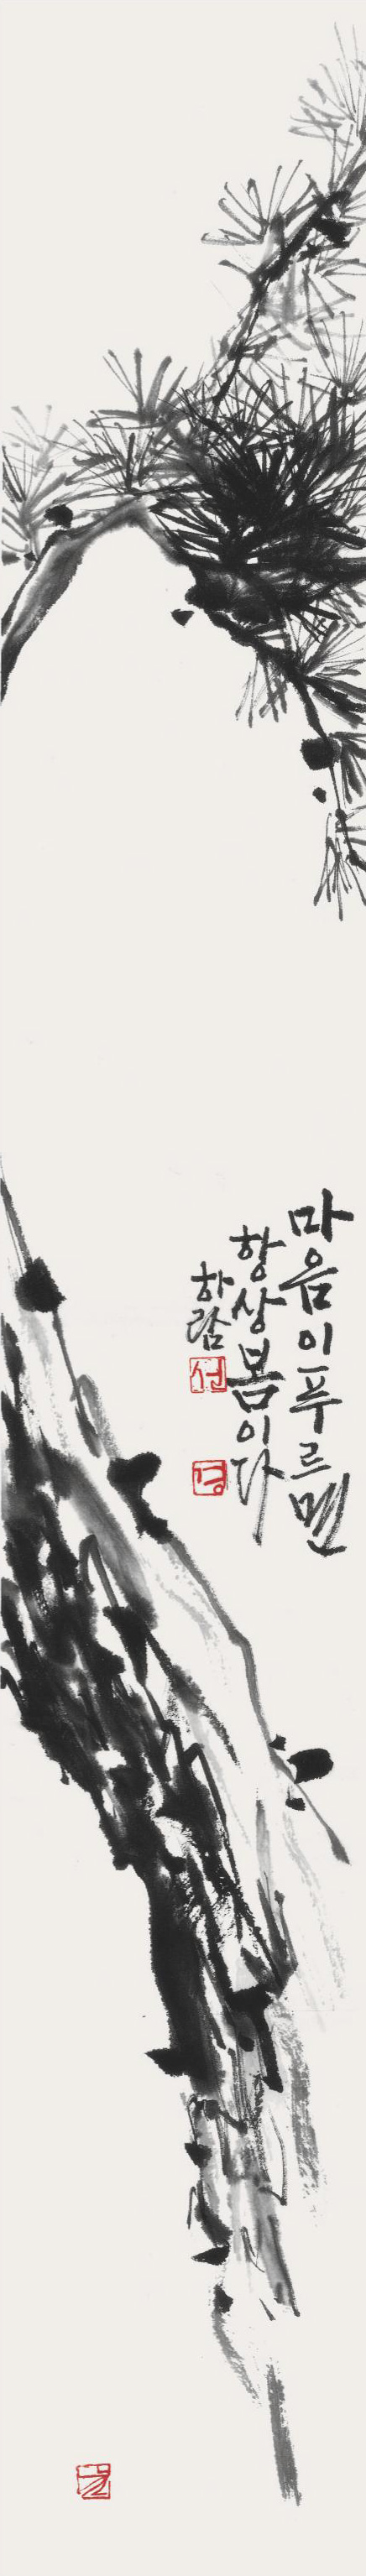 마음이 푸르면
항상 봄이다
하람
선
경